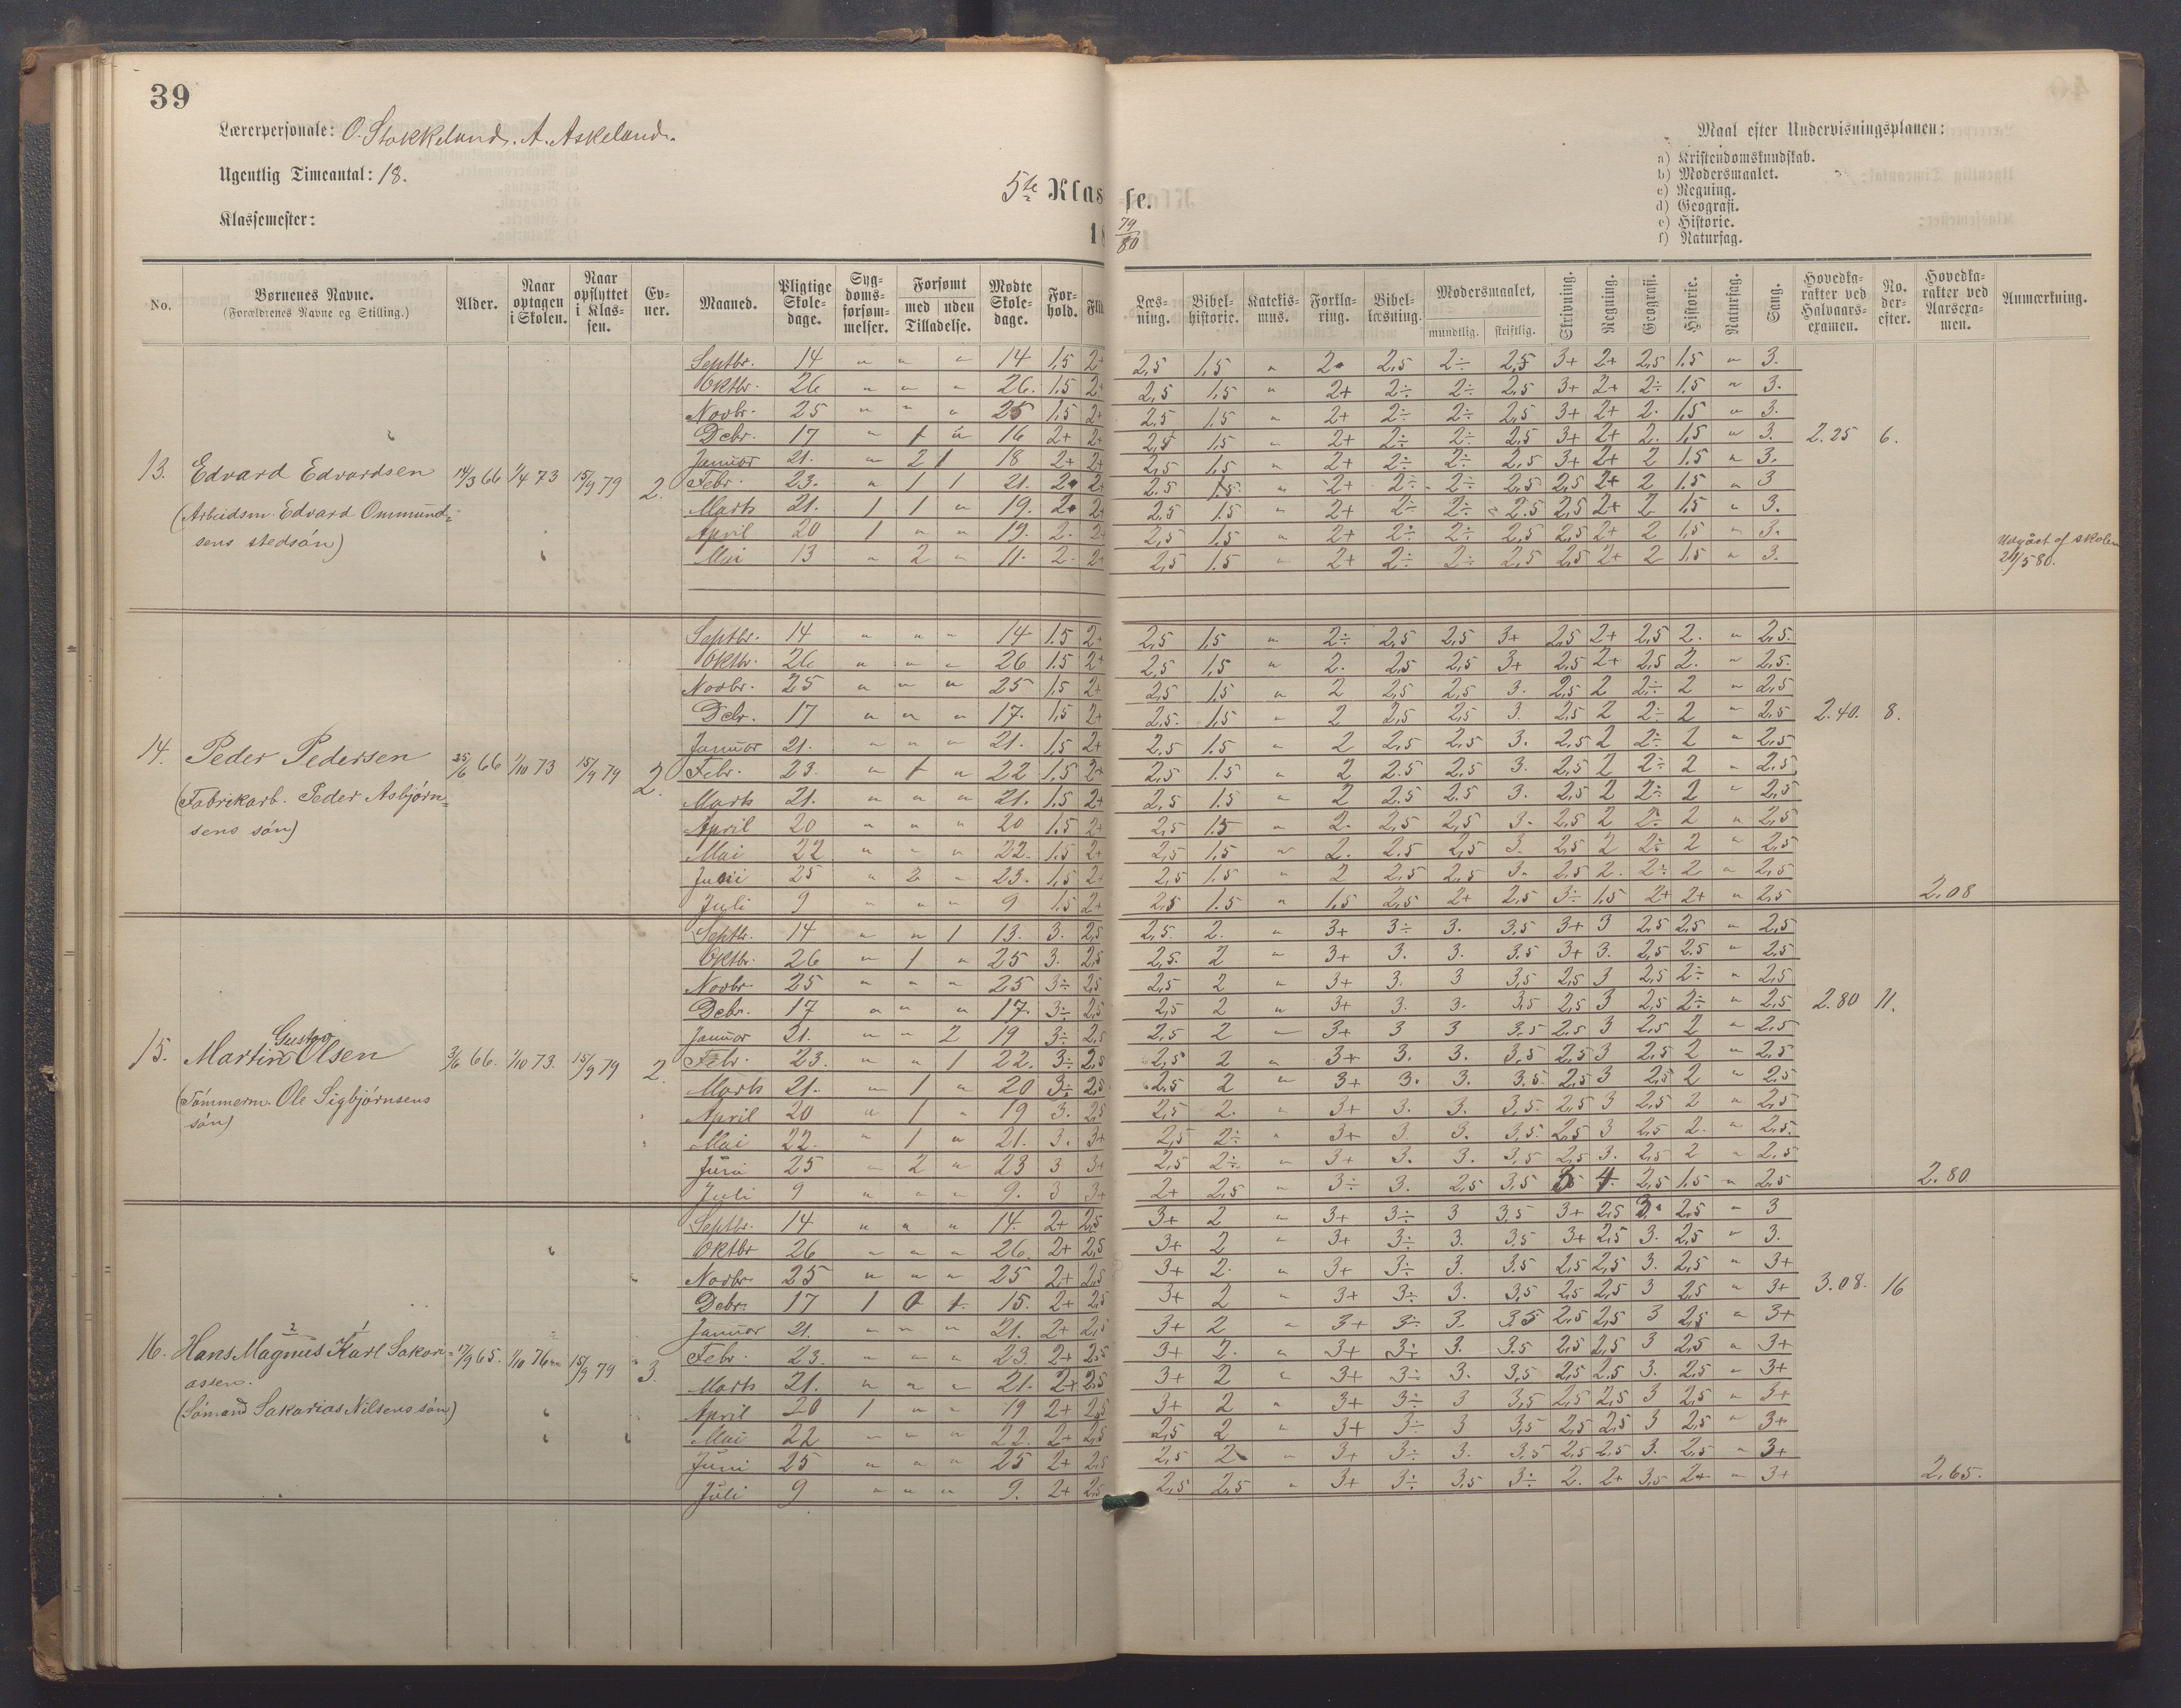 39
Lærerpersonale: O. Stokkeland. A. Askeland.
Ugentlig Timeantal: 18.
Klassemester:
5te Klasse.
18 79/80
Maal efter Undervisningsplanen:
a) Kristendomskundskab.
b) Modersmaalet.
c) Regning.
d) Geografi.
e) Historie.
f) Naturfag.
No. | Børnenes Navne. (Forældrenes Navne og Stilling.) | Alder. | Naar optagen i Skolen. | Naar opflyttet i Klassen. | Evner. | Maaned. | Pligtige Skoledage. | Sygdomsforsømmelser. | Forsømt med uden Tilladelse. | Mødte Skoledage. | Forhold. | Fli | Læsning. | Bibelhistorie. | Katekismus. | Forklaring. | Bibellæsning. | Modersmaalet, mundtlig. skriftlig. | Skrivning. | Regning. | Geografi. | Historie. | Naturfag. | Sang. | Hovedkarakter ved Halvaarsexamen. | No. derefter. | Hovedkarakter ved Aarsexamen. | Anmærkning.
13. Edvard Edvardsen 14/3 66 1/4 73 15/9 79 2.
(Arbeidsm. Edvard Ommundsens stedsón)
Septbr. 14 " " " 14 1,5 2+ 2,5 1,5 " 2 2,5 2÷ 2,5 3+ 2+ 2,5 1,5 " 3.
Oktbr. 26 " " " 26. 1.5 2+ 2,5 1,5 " 2+ 2÷ 2÷ 2,5 3+ 2+ 2÷ 1.5 " 3.
Novbr. 25 " " " 25 1,5 2+ 2.5 1.5 " 2+ 2÷ 2÷ 2,5 3+ 2+ 2. 1,5 " 3.
Debr. 17 " 1 " 16 2+ 2+ 2,5 1,5 " 2+ 2÷ 2÷ 2.5 3+ 2+ 2. 1,5 " 3. 2.25 6.
Januar 21. " 2 1 18 2+ 2+ 2,5 1,5 " 2+ 2÷ 2÷ 2,5 3+ 2+ 2 1.5 " 3.
Febr. 23. " 1 1 21. 2 2+ 2.5 1.5 " 2+ 2÷ 2÷ 2,5 2,5 2+ 2 1,5 " 3
Marts 21. 1 1 " 19. 2 2+ 2,5 1.5 " 2+ 2÷ 2÷ 2.5 2,5 2+ 2 1.5 " 3.
April 20 1 " " 19. 2. 2+ 2,5 1.5 " 2+ 2÷ 2÷ 2,5 2,5 2+ 2 1,5 " 3.
Mai 13 " 2 " 11. 2. 2+ 2,5 1.5 " 2+ 2÷ 2÷ 2,5 2,5 2+ 2 1.5 " 3.
Udgået af skolen 24/5 80.
14. Peder Pedersen 25/6 66 1/10 73 15/9 79 2.
(Fabrikarb. Peder Asbjørnsens són)
Septbr. 14 " " " 14 1.5 2+ 2,5 1,5 " 2÷ 2,5 2,5 3+ 2,5 2+ 2,5 2. " 2,5.
Oktbr. 26 " " " 26 1.5 2+ 2,5 1,5 " 2. 2,5 2,5 3+ 2,5 2+ 2,5 2. " 2,5.
Novbr. 25 " " " 25 1,5 2+ 2,5 1.5 " 2 2,5 2,5 3. 2,5 2 2÷ 2 " 2,5
Debr. 17 " " " 17. 1,5 2+ 2,5. 1,5 " 2 2,5 2,5 3. 2,5 2 2÷ 2 " 2,5 2.40. 8.
Januar 21. " " " 21. 1,5 2+ 2,5 1.5 " 2 2,5 2,5 3. 2,5 2 2÷ 2 " 2,5
Febr. 23. " 1 " 22 1,5 2+ 2,5 1.5 " 2 2.5 2.5 3. 2,5 2 2÷ 2 " 2,5
Marts 21. " " " 21. 1,5 2+ 2,5 1.5 " 2 2.5 2.5 3. 2,5 2 2÷ 2 " 2,5
April 20 " " " 20 1.5 2+ 2,5 1.5 " 2. 2,5 2,5 3. 2,5 2 2÷ 2 " 2,5
Mai 22 " " " 22. 1.5 2+ 2,5 1,5 " 2. 2.5 2,5 3. 2,5 2 2÷ 2 " 2,5
Juni 25 " 2 " 23. 1,5 2+ 2,5 1.5 " 2 2,5 2,5 3. 2,5 2. 2÷ 2 " 2,5
Juli 9 " " " 9 1.5 2+ 2,5 1.5 " 1,5 2,5 2+ 2,5 3÷ 1,5 2+ 2+ " 2,5 2,08
15. Martin Gustav Olsen 3/6 66. 1/10 73. 15/9 79 2.
(Tómmerm. Ole Sigbjórnsens són)
Septbr. 14 " " 1 13. 3. 2,5 2,5. 2. " 3+ 3÷ 3. 3,5 3+ 3 2,5 2,5 " 2,5
Oktbr. 26 " 1 " 25 3. 2,5 2,5. 2 " 3+ 3. 3. 3.5 3+ 3. 2,5 2.5 " 2,5
Novbr. 25 " " " 25 3÷ 2,5 2,5 2 " 3+ 3. 3 3,5 2,5 3 2,5 2÷ " 2,5
Debr. 17 " " " 17. 3÷ 2,5 2,5 2 " 3+ 3. 3. 3,5 2,5 3 2,5 2÷ " 2,5 2.80 11.
Januar 21. " " 2 19 3÷ 2,5 2,5 2 " 3+ 3 3 3,5 2,5 3 2,5 2 " 2,5
Febr. 23. " " 1 22. 3÷ 2,5 2,5 2 " 3+ 3. 3. 3,5 2,5 3 2,5 2 " 2,5
Marts 21. " 1 " 20 3÷ 2,5 2.5 2 " 3+ 3. 3. 3.5. 2,5 3 2,5 2 " 2,5
April 20 " 1 " 19 3. 2,5 2,5 2. " 3+ 3. 3. 3,5. 2,5 3 2,5 2 " 2,5
Mai 22. " 1 " 21. 3. 3+ 2,5 2÷ " 3+ 3. 3. 3,5. 2,5 3 2,5 2. " 2,5.
Juni 25 " 2 " 23 3 3+ 2,5 2÷ " 3+ 3. 3. 3,5 2,5 3. 2,5 2 " 2,5
Juli 9 " " " 9. 3 3+ 2+ 2,5 " 3÷ 3. 2,5 3,5 3 4. 2,5 1.5 " 2,5 2.80
16. Hans Magnus Karl Sakariassen. 17/9 65. 1/10 76 15/9 79 3.
(Sómand Sakarias Nilsens són)
Septbr. 14 " " " 14. 2+ 2,5 3+ 2 " 3+ 3÷ 3 3,5 3+ 2,5 3. 2,5 " 3
Oktbr 26 " " " 26. 2+ 2,5 3+ 2 " 3+ 3÷ 3. 3,5 3+ 2,5 3. 2,5 " 3.
Novbr. 25 " " " 25 2+ 2,5 3+ 2. " 3+ 3÷ 3. 3.5 2,5 2,5 3. 2,5 " 3+
Debr. 17 1 1 15. 2+ 2,5 3+ 2 " 3+ 3÷ 3. 3,5 2,5 2,5 3 2,5 " 3+ 3.08. 16
Januar 21. " " " 21. 2+ 2,5 3+ 2 " 3+ 3÷ 3. 3,5 2,5 2,5 3 2,5 " 3+
Febr. 23. " " " 23. 2+ 2,5 3+ 2. " 3+ 3÷ 3. 3.5 2,5 2,5 3 2,5 " 3+
Marts 21. " " " 21. 2+ 2,5 3+ 2 " 3+ 3÷ 3. 3,5 2,5 2.5 3. 2,5 " 3+
April 20 1 " " 19 2+ 2,5 3+ 2 " 3+ 3÷ 3 3,5 2,5 2,5 3 2,5 " 3+
Mai 22 " " " 22. 2+ 2,5 2,5 2 " 3+ 3÷ 3 3,5 2,5 2,5 3 2,5 " 3+
Juni 25 " " " 25 2+ 2,5 2,5 2 " 3+ 3÷ 3. 3,5 2,5 2.5 3. 2,5 " 3+
Juli 9 " " " 9. 2+ 2,5 2,5 2,5 " 3+ 3÷ 3,5 3÷ 2. 2+ 3,5 2+ " 3+ 2,65.